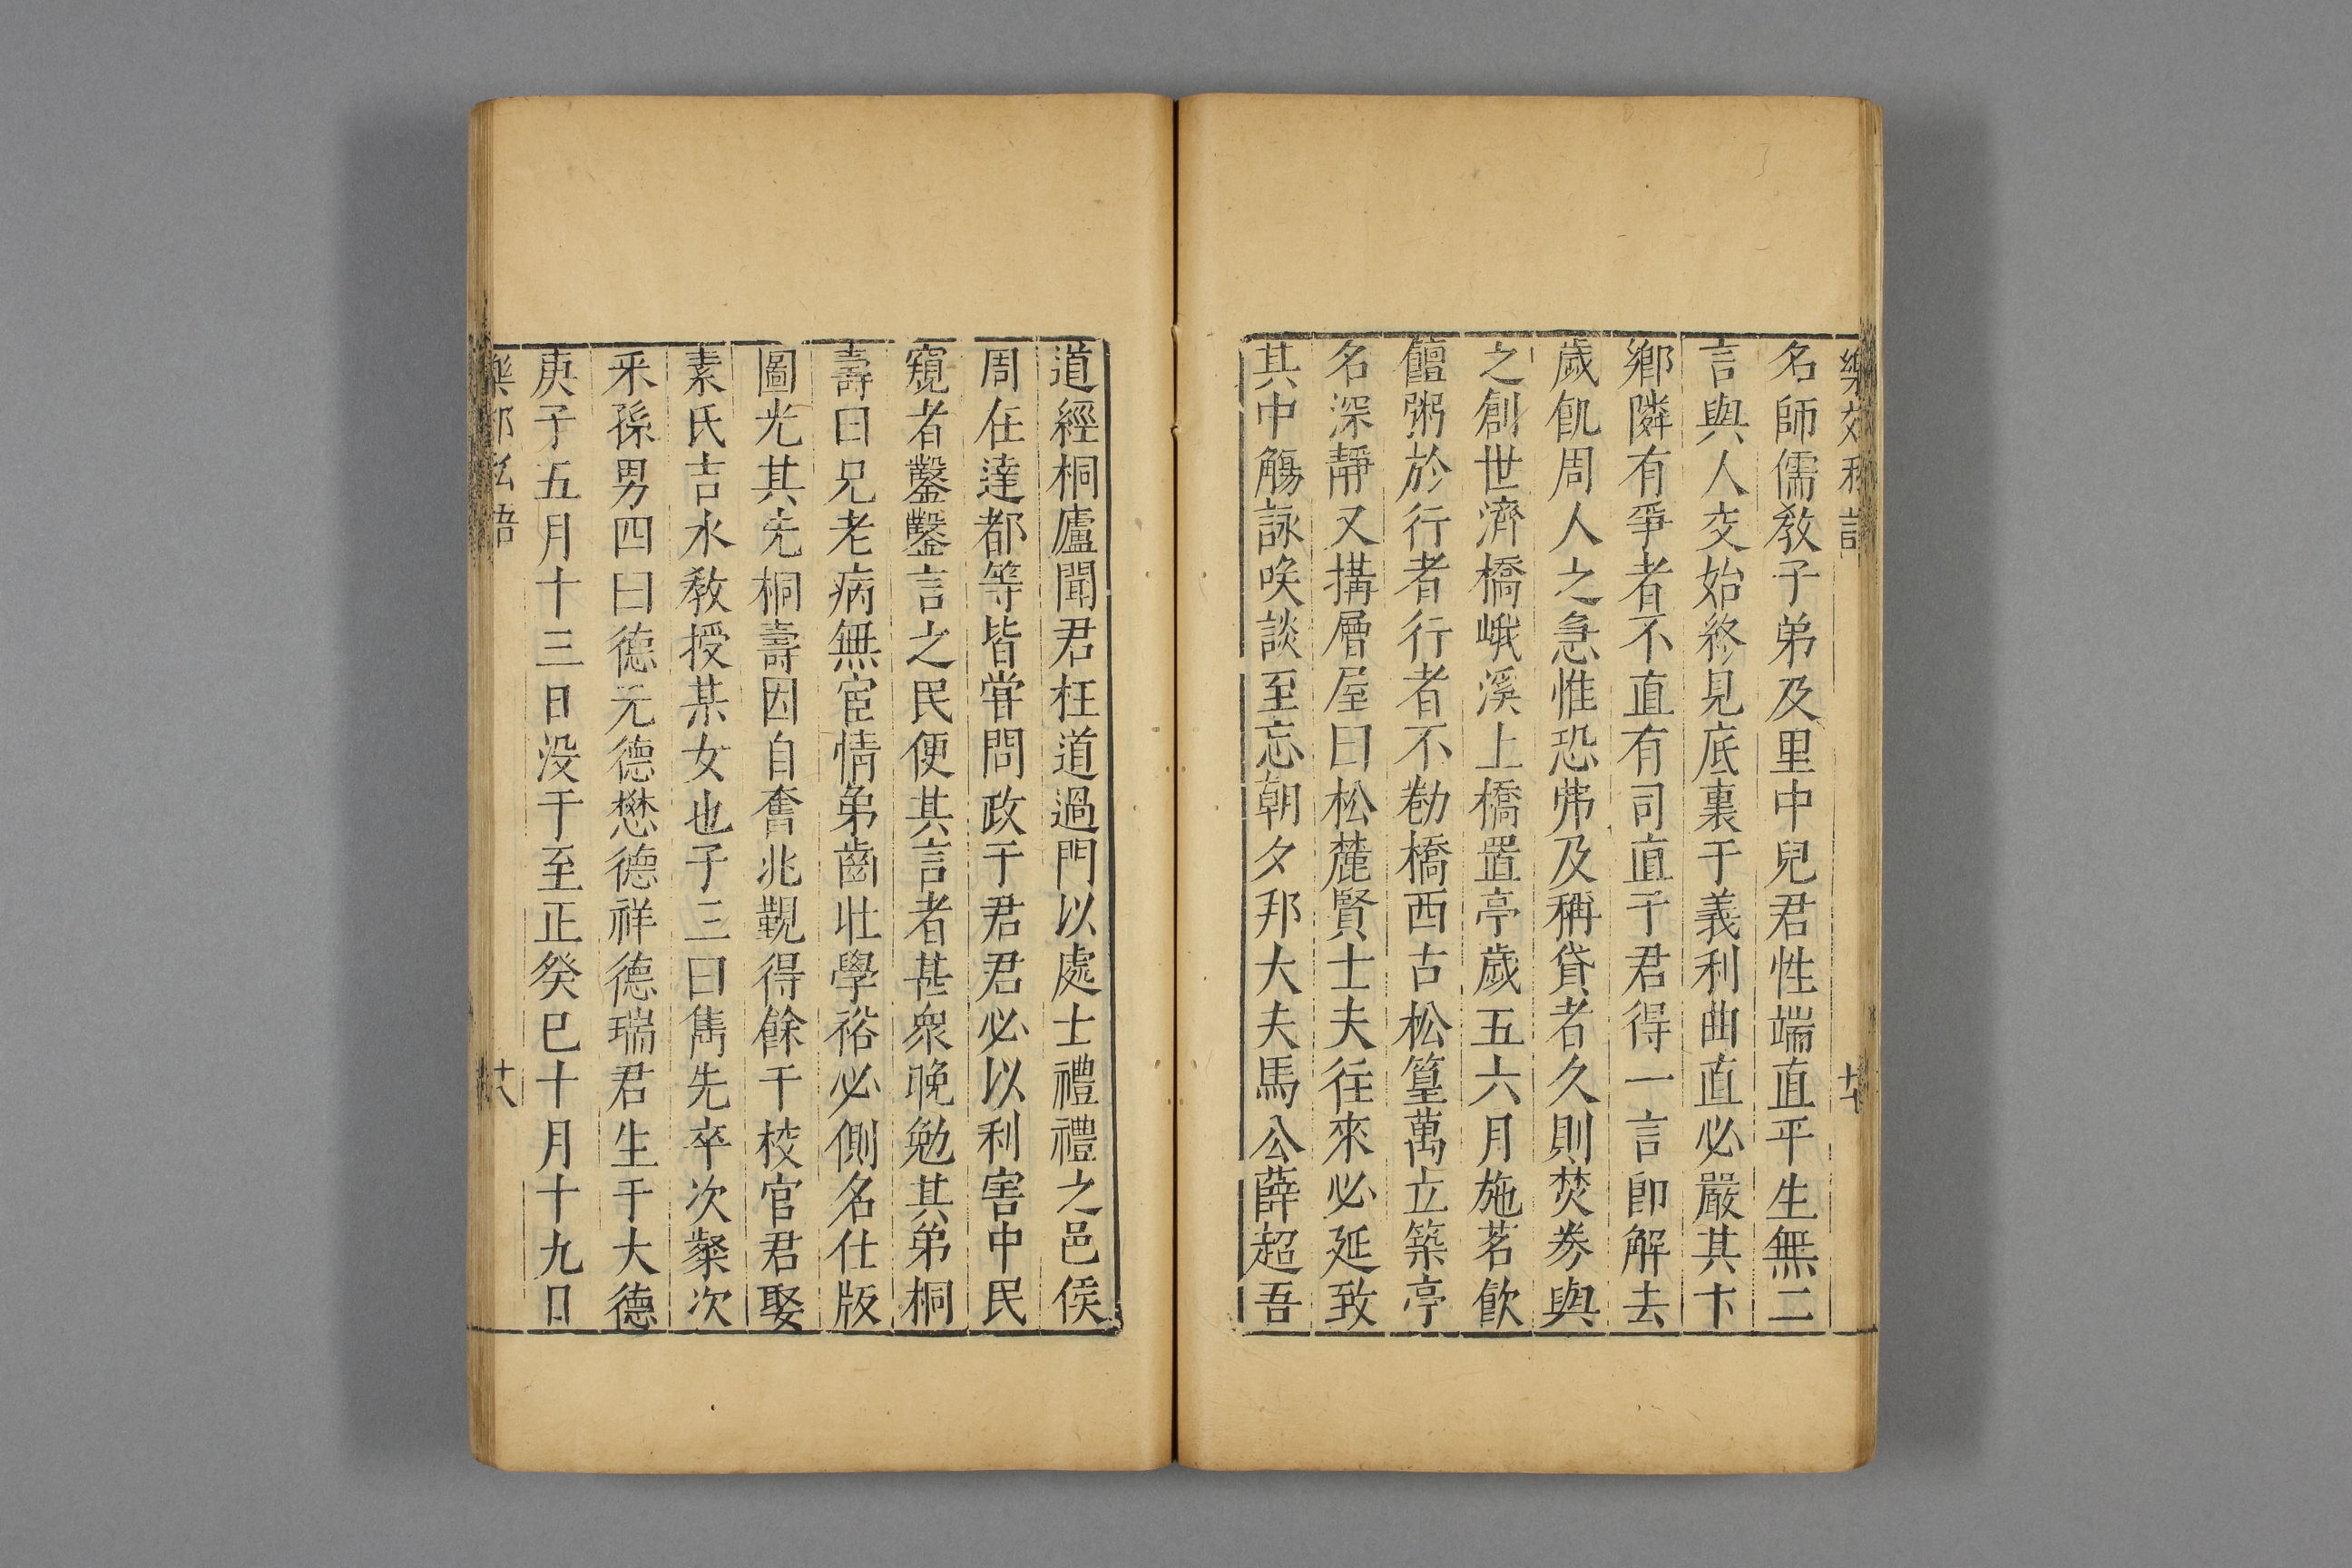 樂郊私語
十七
名師儒教子弟及里中兒君性端直平生無二
言與人交始終見底裏于義利曲直必嚴其卞
鄉隣有爭者不直有司直于君得一言即解去
歲飢周人之急惟恐弗及稱貸者久則焚券與
之創世濟橋峨溪上橋置亭歲五六月施茗飲
饘粥於行者行者不勌橋西古松篁萬立築亭
名深靜又搆層屋曰松麓賢士夫往來必延致
其中觴詠唉談至忘朝夕邦大夫馬公薛超吾
道經桐廬聞君枉道過門以處士禮禮之邑侯
周在達都等皆甞問政于君君必以利害中民
窺者鑿鑿言之民便其言者甚衆晚勉其弟桐
壽曰兄老病無宦情弟齒壯學裕必側名仕版
圖光其先桐壽因自奮兆觀得餘干校官君娶
素氏吉水教授某女也子三曰雋先卒次粲次
釆孫男四曰德元德懋德祥德瑞君生于大德
庚子五月十三日没于至正癸巳十月十九日
樂郊私語
十八